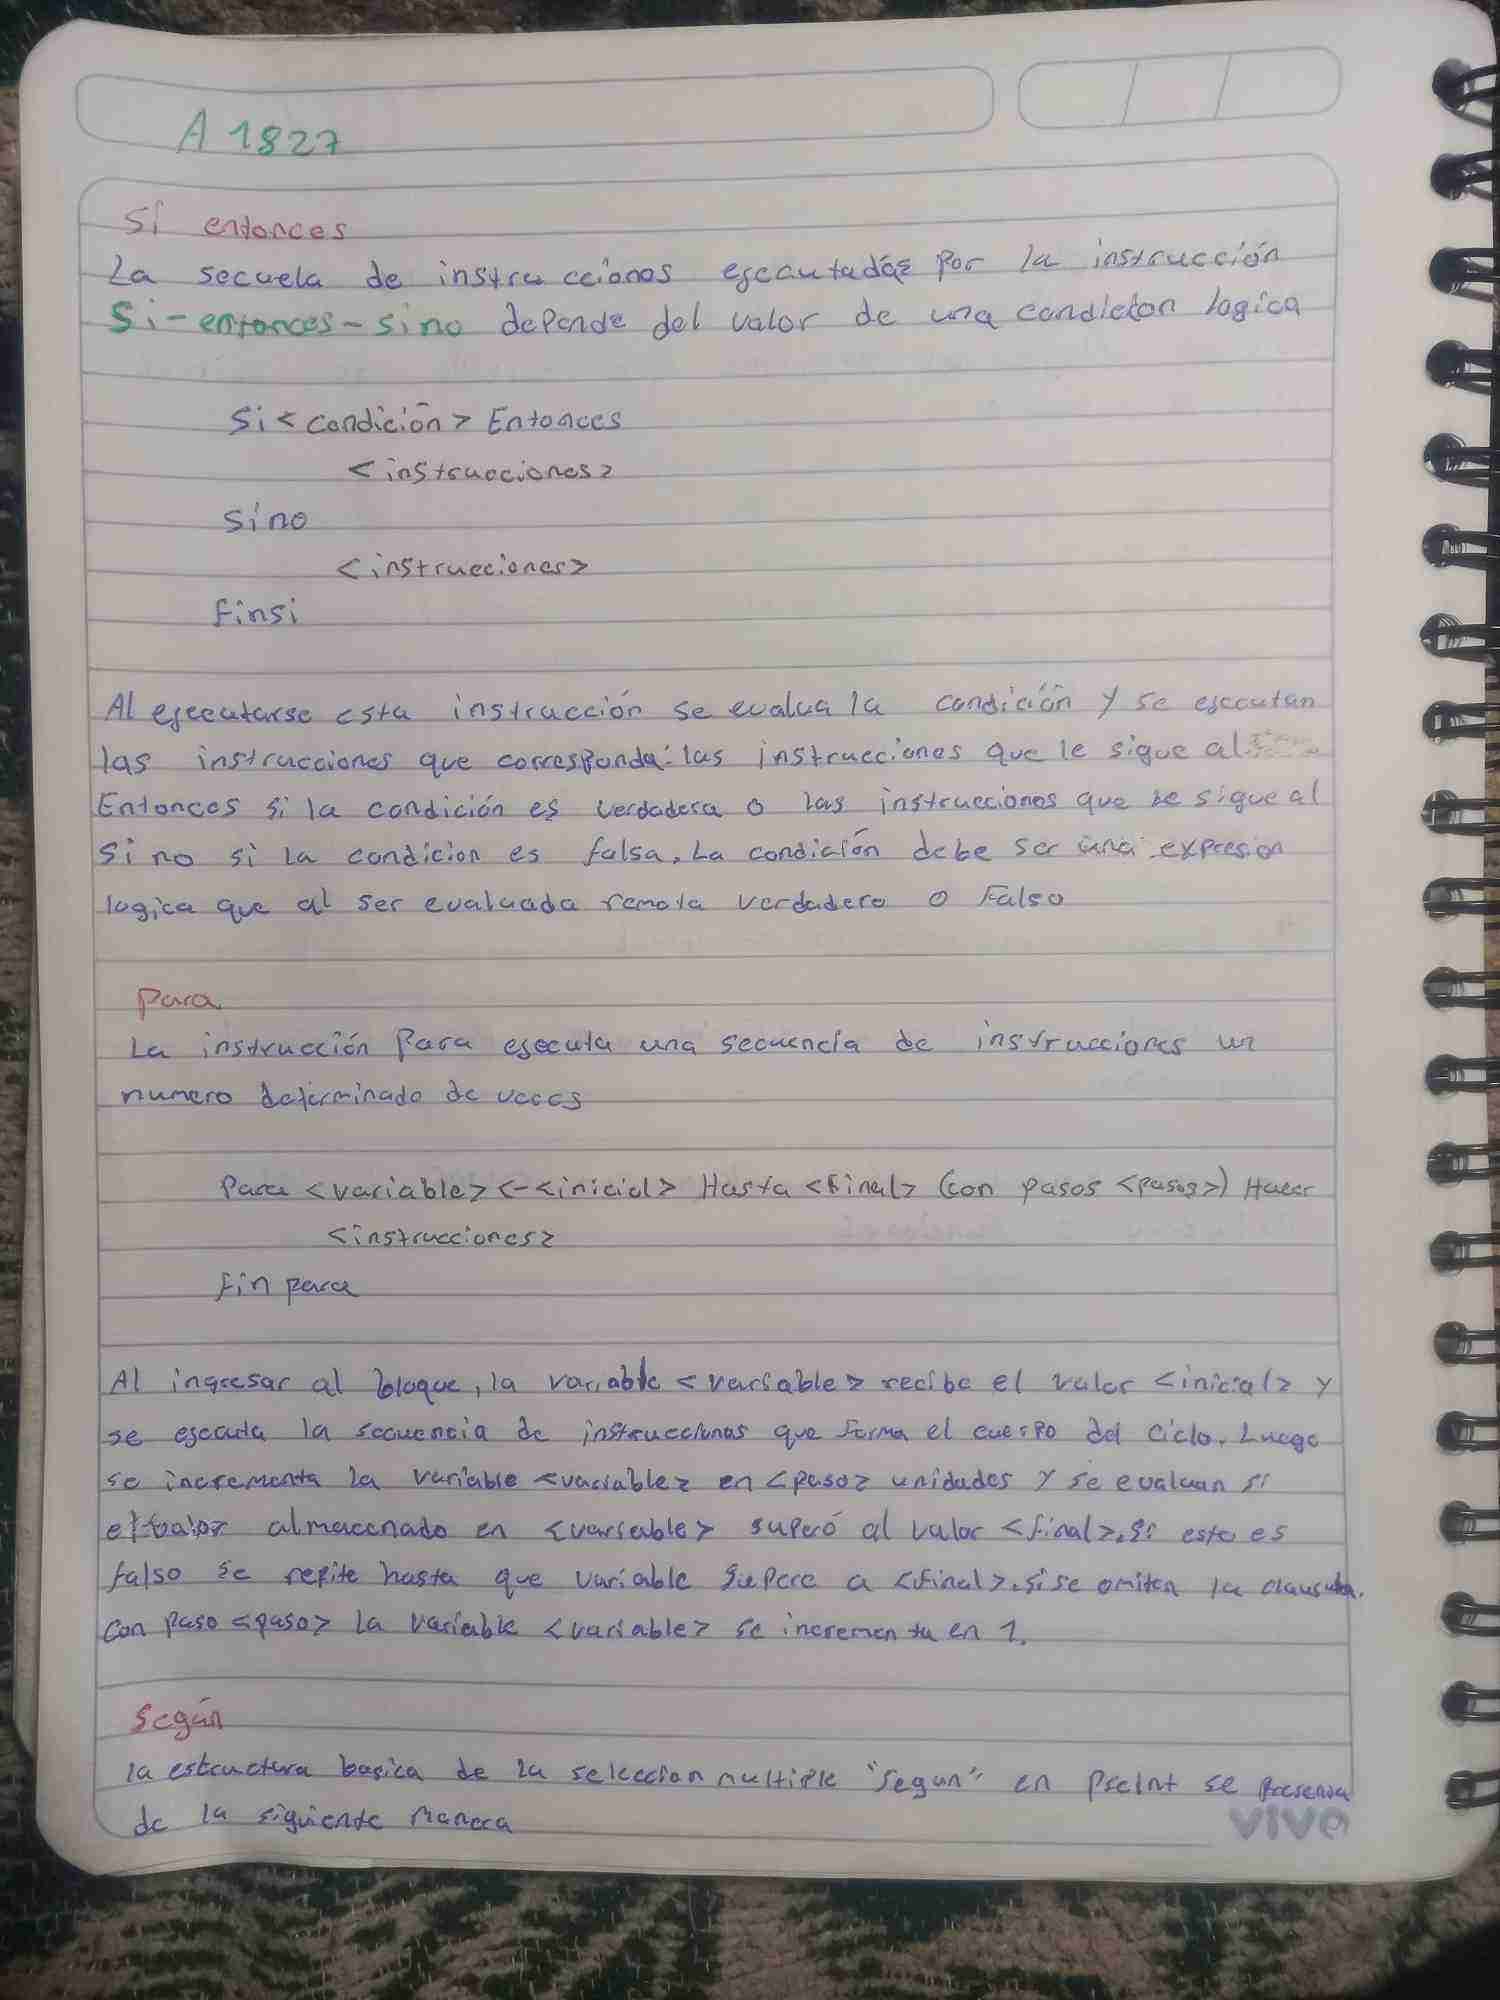 A 1827
Si entonces
La secuela de instrucciones escautadas por la instrucción
Si-entonces-sino depende del valor de una condicion logica
Si < condición > Entonces
<instrucciones>
sino
<instrucciones>
Finsi
Al esecutarse esta instrucción se evalua la condición y se esecutan
las instrucciones que corresponda: las instrucciones que le sigue al
Entonces si la condición es verdadera o las instrucciones que se sigue al
Si no si la condicion es falsa. La condición debe ser una expresion
logica que al ser evaluada verdadero o Falso
Para
La instrucción Para esecuta una secuencia de instrucciones un
numero determinado de veces
Para <variable> <-<inicial> Hasta <final> (con pasos <pasos>) Hacer
<instrucciones>
Fin para
Al ingresar al bloque, la variable <variable> recibe el valor <inicial> y
se esecuta la secuencia de instrucciones que forma el cuerpo del ciclo. Luego
se incrementa la variable <variable> en <paso> unidades y se evaluan si
el valor almacenado en <variable> superó al valor <final>. si esto es
falso se repite hasta que variable supere a <final>. si se omiten la clausula.
con paso <paso> la variable <variable> se incrementa en 1.
Según
la estructura basica de la seleccion multiple "segun" en PseInt se presenta
de la siguiente manera
vivo